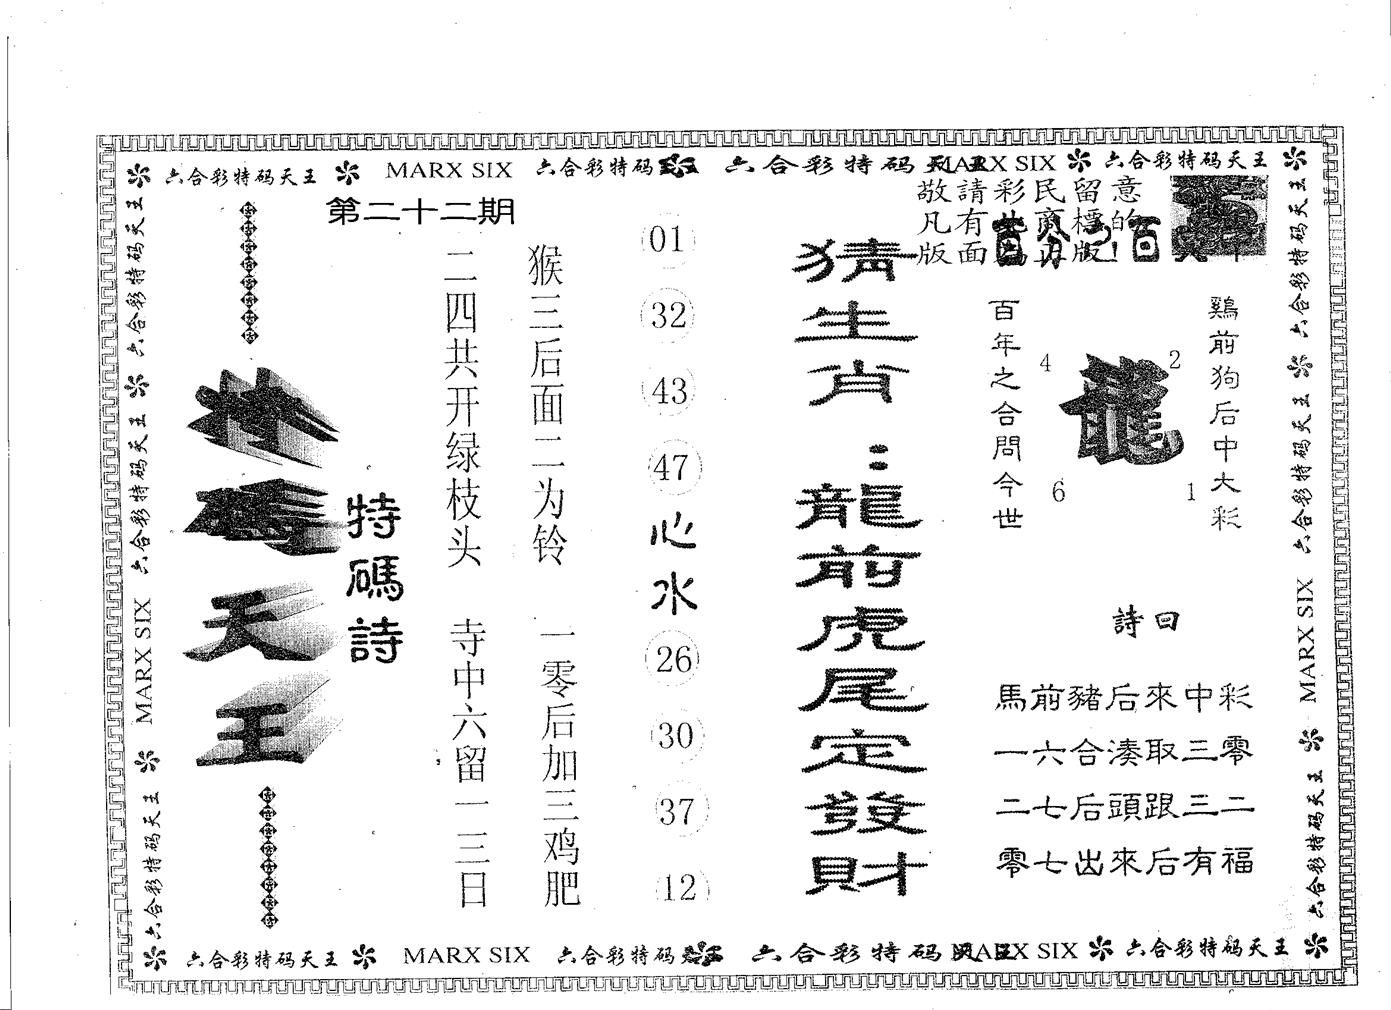 六合彩特码天王 MARX SIX 六合彩特码 六合彩特码天王 MARX SIX 六合彩特码天王
第二十二期
敬請彩民留意
凡有此商標的
版面為正版!
猜生肖：龍前虎尾定發財
鷄前狗后中大彩
百年之合問今世
龍
4
2
6
1
詩曰
馬前豬后來中彩
一六合湊取三零
二七后頭跟三二
零七出來后有福
01
32
43
47
心水
26
30
37
12
猴三后面二为铃 一零后加三鸡肥
二四共开绿枝头 寺中六留一三日
特碼詩
特碼天王
六合彩特码天王
六合彩特码天王
六合彩特码天王
MARX SIX
六合彩特码天王
六合彩特码天王
六合彩特码天王
六合彩特码天王
MARX SIX
六合彩特码天王
六合彩特码天王 MARX SIX 六合彩特码 六合彩特码天王 MARX SIX 六合彩特码天王